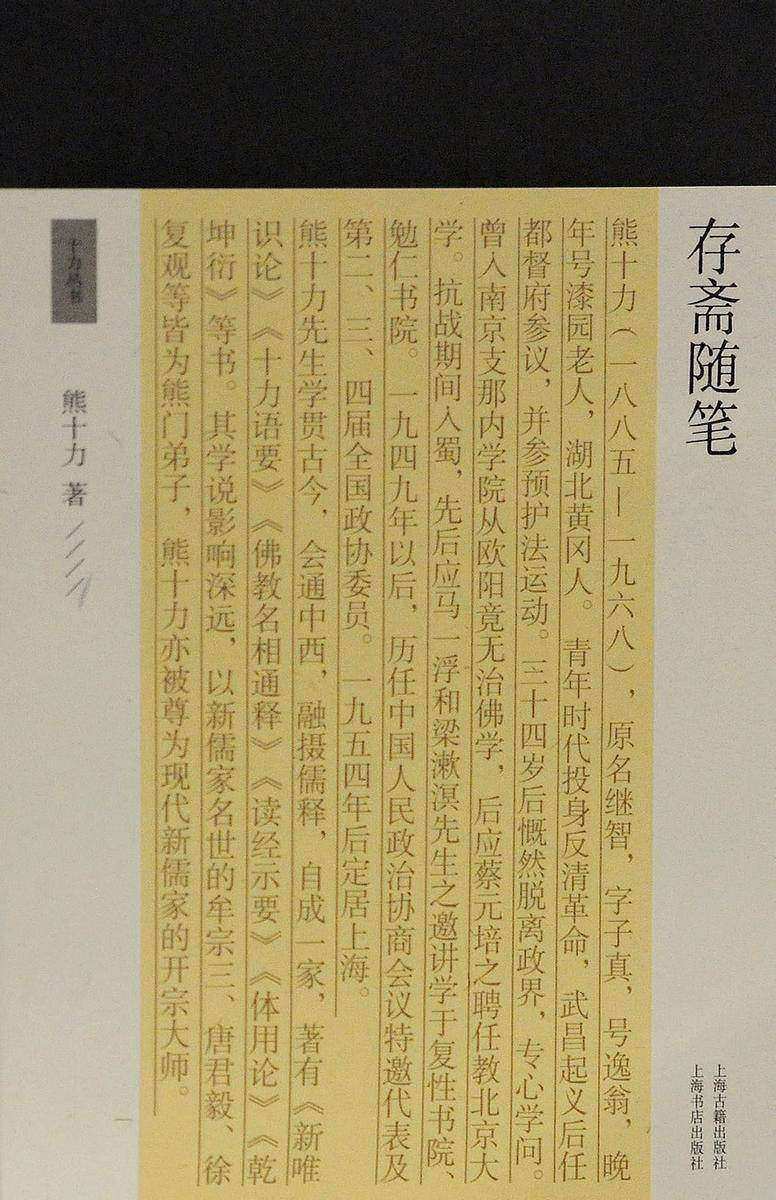 存斋随笔
上海古籍出版社
上海书店出版社
熊十力（一八八五—一九六八），原名继智，字子真，号逸翁，晚
年号漆园老人，湖北黄冈人。青年时代投身反清革命，武昌起义后任
都督府参议，并参预护法运动。三十四岁后慨然脱离政界，专心学问。
曾入南京支那内学院从欧阳竟无治佛学，后应蔡元培之聘任教北京大
学。抗战期间入蜀，先后应马一浮和梁漱溟先生之邀讲学于复性书院、
勉仁书院。一九四九年以后，历任中国人民政治协商会议特邀代表及
第二、三、四届全国政协委员。一九五四年后定居上海。
熊十力先生学贯古今，会通中西，融摄儒释，自成一家，著有《新唯
识论》《十力语要》《佛教名相通释》《读经示要》《体用论》《乾
坤衍》等书。其学说影响深远，以新儒家名世的牟宗三、唐君毅、徐
复观等皆为熊门弟子，熊十力亦被尊为现代新儒家的开宗大师。
十力丛书
熊十力 著